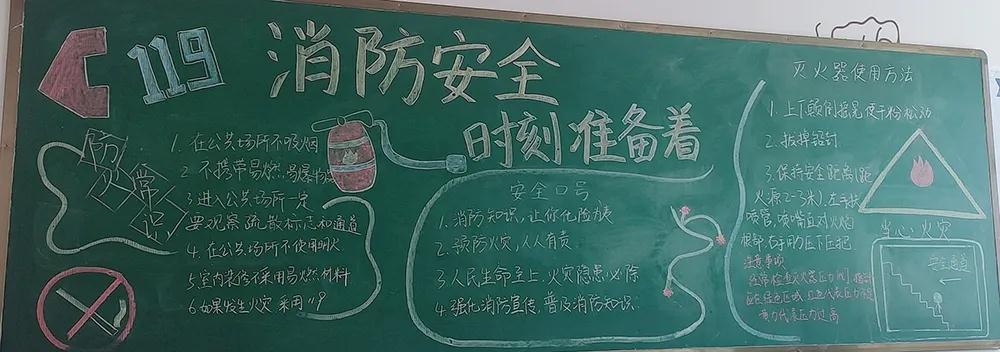 119
消防安全
时刻准备着
防火常识
1.在公共场所不吸烟
2.不携带易燃、易爆物品
3.进入公共场所一定
要观察疏散标志和通道
4.在公共场所不使用明火
5.室内装修不采用易燃材料
6.如果发生火灾 采用119
安全口号
1.消防知识,让你化险为夷
2.预防火灾,人人有责
3.人民生命至上,火灾隐患必除
4.强化消防宣传,普及消防知识
灭火器使用方法
1.上下颠倒摇晃使干粉松动
2.拔掉铅封
3.保持安全距离(距
火源2-3米),左手扶
喷管,喷嘴直对火焰
根部,右手用力压下压把
注意事项
经常检查灭火器压力阀,指针
应在绿色区域,红色代表压力不足
黄力代表压力过高
当心:火灾
安全通道